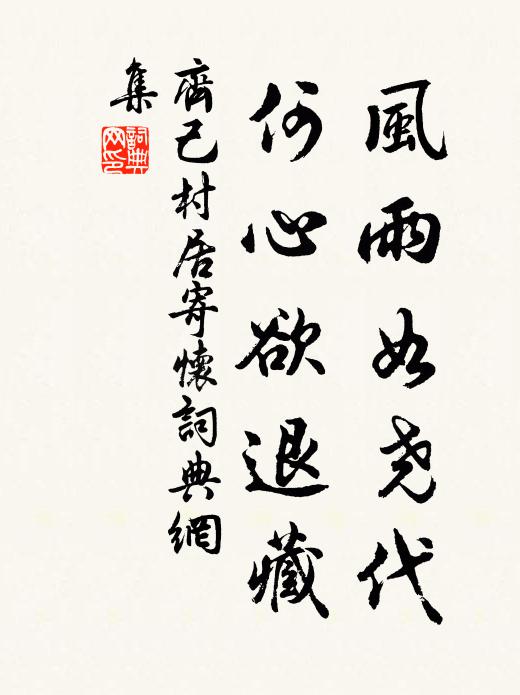 風雨如尭代
何心欲退藏
齊己村居寄懷詞典網
集
詞典網印